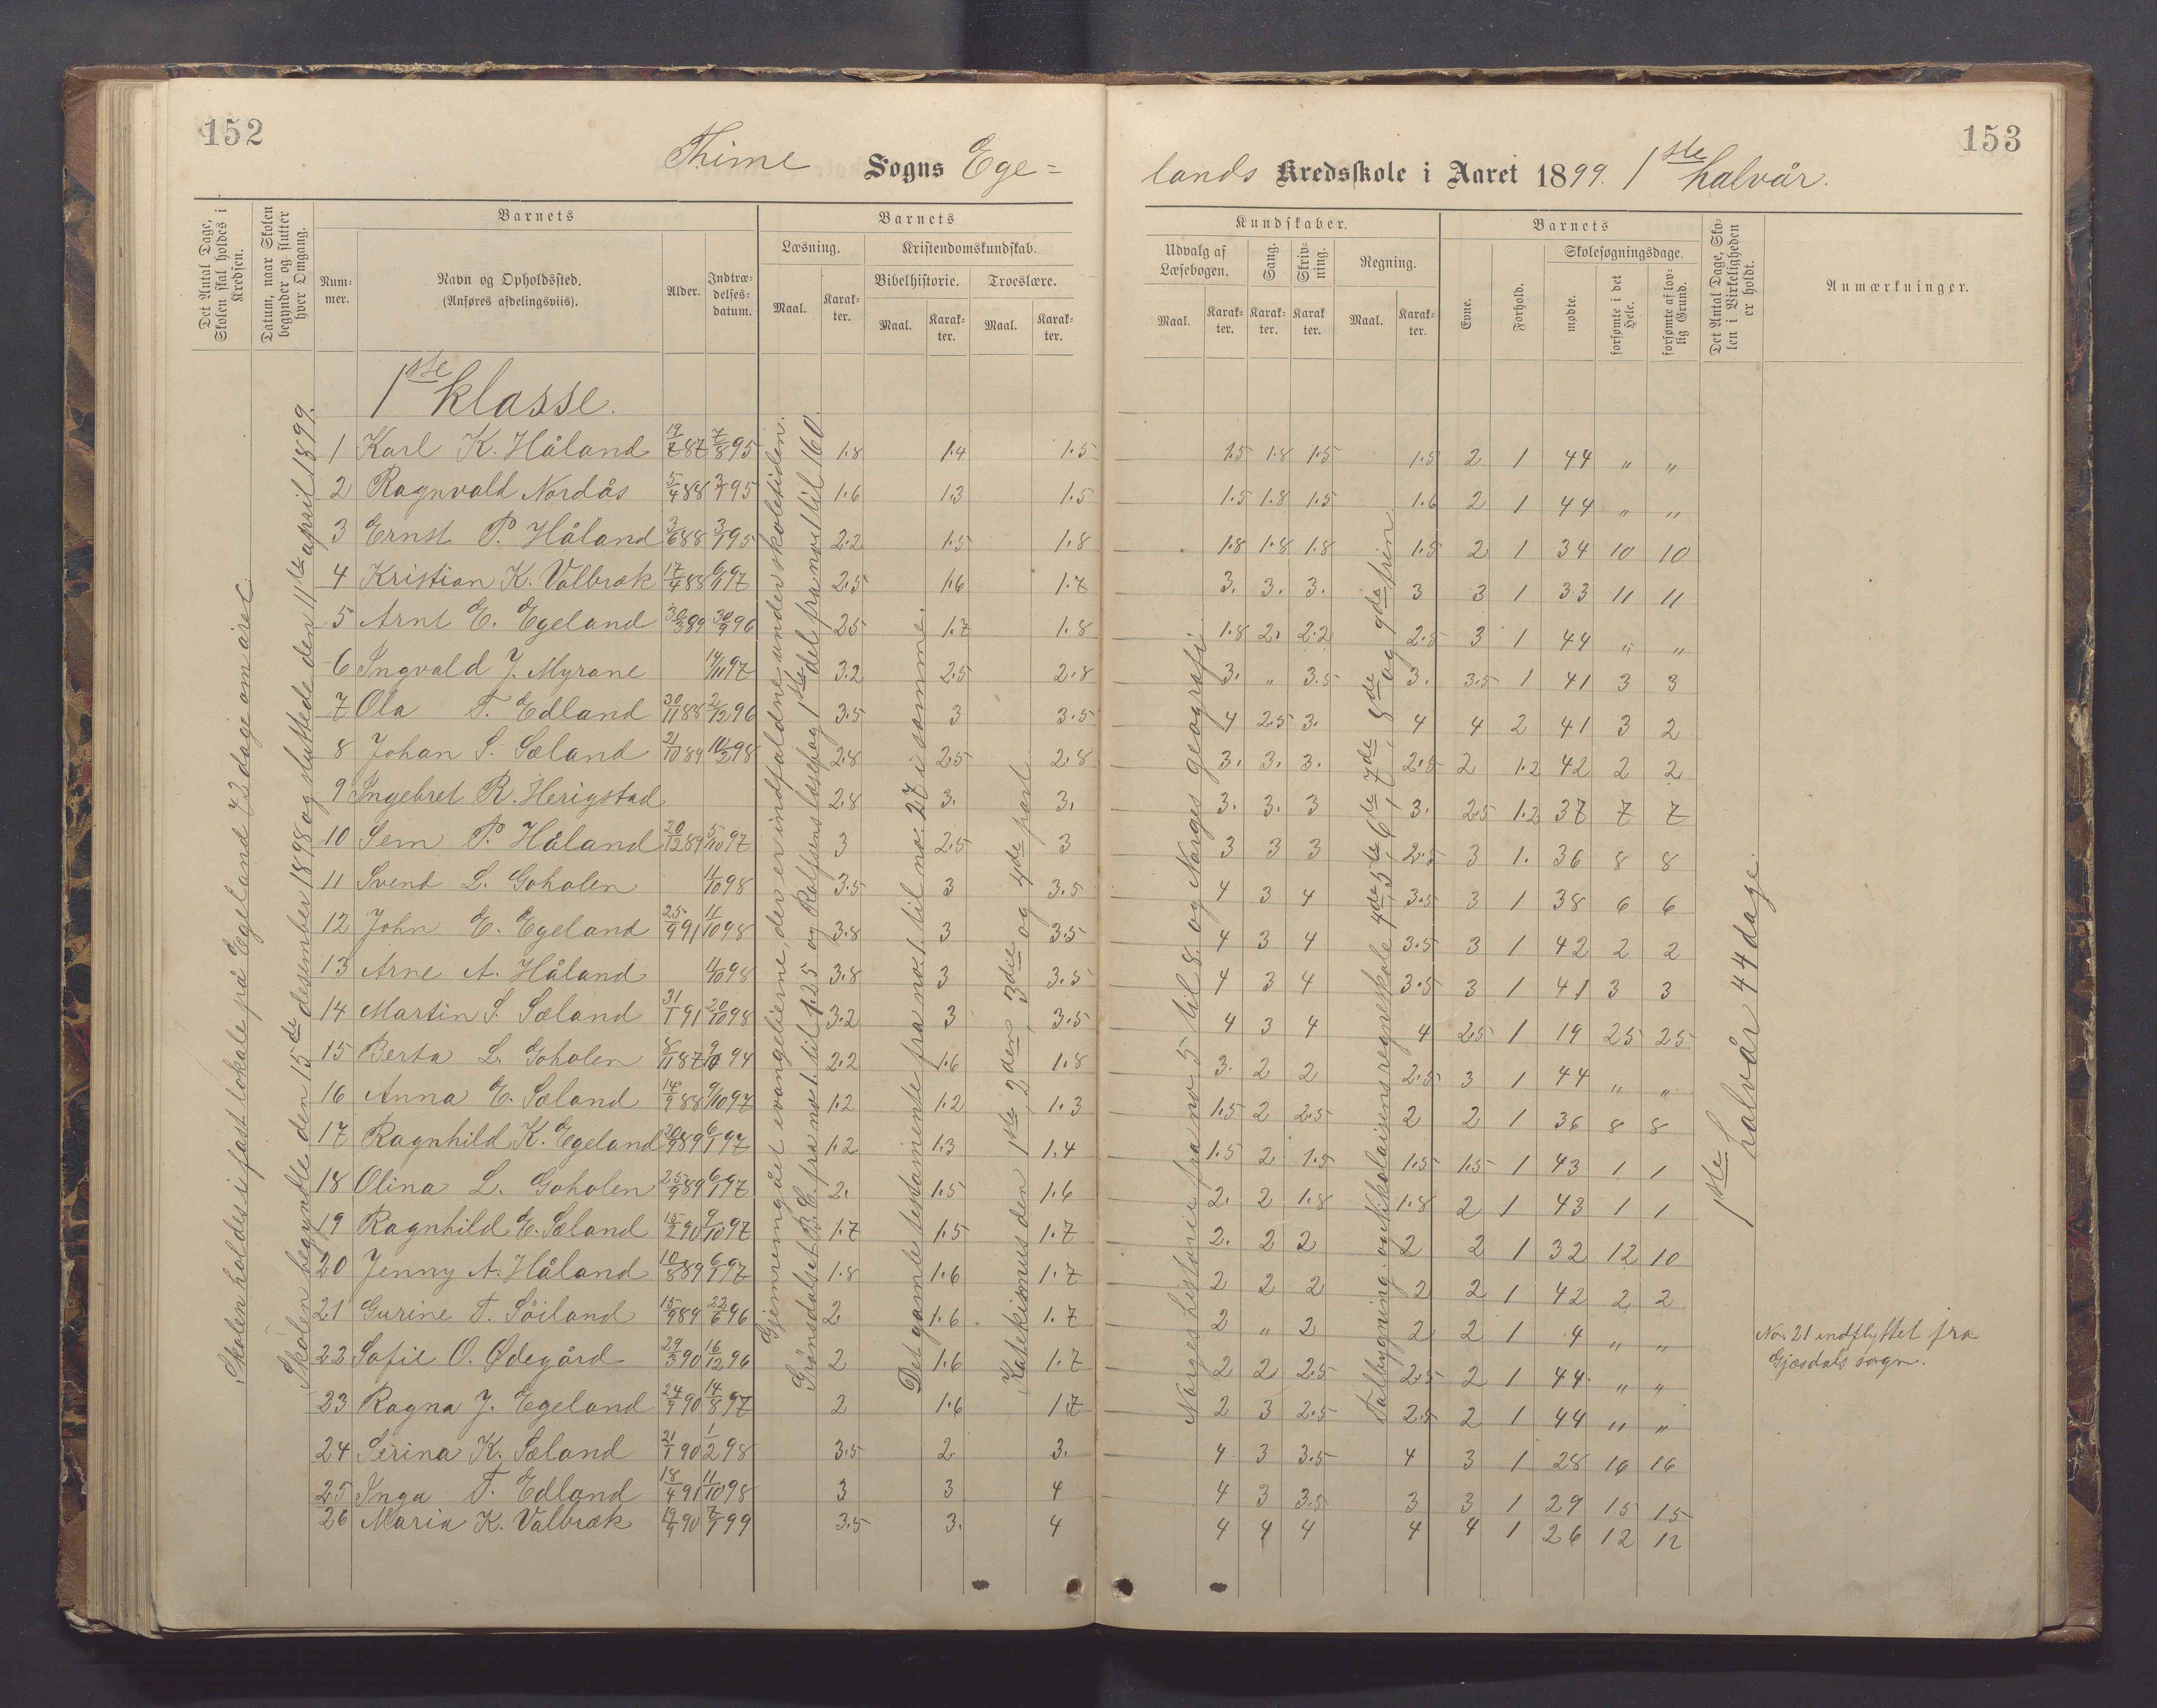 152
153
Thime Sogns Ege-
lands Kredsskole i Aaret 1899. 1ste halvår.
Det Antal Dage, Skolen skal holdes i Kredsen.
Datum, naar Skolen begynder og slutter hver Omgang.
Barnets
Num-mer.
Navn og Opholdssted.
(Anføres afdelingsviis).
Alder.
Indtræ-delses-datum.
Barnets
Læsning.
Maal.
Karak-ter.
Kristendomskundskab.
Bibelhistorie.
Maal.
Karak-ter.
Troeslære.
Maal.
Karak-ter.
Kundskaber.
Udvalg af Læsebogen.
Maal.
Karak-ter.
Sang.
Karak-ter.
Skriv-ning.
Karak-ter.
Regning.
Maal.
Karak-ter.
Barnets
Evne.
Forhold.
Skolesøgningsdage.
mødte.
forsømte i det Hele.
forsømte af lov-lig Grund.
Det Antal Dage, Sko-len i Virkeligheden er holdt.
Anmærkninger.
Skolen holdes i fast lokale på Egeland 72 dage om året.
Skolen begyndte den 15de desember 1898 og sluttede den 11te april 1899.
Gjennemgået evangelierne, der er indfaldne under skoletiden.
Grønsdalset A.B.C. fra no 1 til 125 og Rolfsens læsebog 1ste del fra no 1 til 160.
Det gamle testamente fra no. 1 til no. 27 i samme.
Katekismus den 1ste, 2den, 3die og 4de part.
Norges historie fra no 5 til 8 og Norges geografi.
Talbygning og Nikolaisens regneskole 4de, 5te, 6te, 7de, 8de og 9de trin.
1ste halvår 44 dage.
1ste klasse.
1 Karl K. Håland 19/7 87 7/8 95 1.8 1.4 1.5 1.5 1.8 1.5 1.5 2 1 44 " "
2 Ragnvald Nordås 5/4 88 3/1 95 1.6 1.3 1.5 1.5 1.8 1.5 1.6 2 1 44 " "
3 Ernst P. Håland 3/6 88 3/1 95 2.2 1.5 1.8 1.8 1.8 1.8 1.5 2 1 34 10 10
4 Kristian K. Valbræk 17/4 88 6/1 97 2.5 1.6 1.7 3. 3. 3. 3 3 1 33 11 11
5 Arnt E. Egeland 30/3 89 30/9 96 2.5 1.7 1.8 1.8 2. 2.2 2.5 3 1 44 " "
6 Ingvald J. Myrane 14/11 97 3.2 2.5 2.8 3. " 3.5 3. 3.5 1 41 3 3
7 Ola T. Edland 30/11 88 2/12 96 3.5 3 3.5 4 2.5 3. 4 4 2 41 3 2
8 Johan S. Sæland 21/10 89 10/2 98 2.8 2.5 2.8 3. 3. 3. 2.5 2 1.2 42 2 2
9 Ingebret R. Herigstad 2.8 3. 3. 3. 3. 3 3. 2.5 1.2 37 7 7
10 Sem P. Håland 20/12 89 5/10 97 3 2.5 3 3 3 3 2.5 3 1. 36 8 8
11 Svend L. Goholen 11/10 98 3.5 3 3.5 4 3 4 3.5 3 1 38 6 6
12 John E. Egeland 25/9 91 11/10 98 3.8 3 3.5 4 3 4 3.5 3 1 42 2 2
13 Arne A. Håland 11/10 98 3.8 3 3.5 4 3 4 3.5 3 1 41 3 3
14 Martin S. Sæland 31/1 91 20/10 98 3.2 3 3.5 4 3 4 4 2.5 1 19 25 25
15 Berta L. Goholen 8/11 87 9/10 94 2.2 1.6 1.8 3. 2 2 2.5 3 1 44 " "
16 Anna E. Sæland 14/9 88 9/10 97 1.2 1.2 1.3 1.5 2 2.5 2 2 1 36 8 8
17 Ragnhild K. Egeland 20/9 89 6/1 97 1.2 1.3 1.4 1.5 2 1.5 1.5 1.5 1 43 1 1
18 Olina L. Goholen 25/9 89 6/1 97 2. 1.5 1.6 2. 2 1.8 1.8 2 1 43 1 1
19 Ragnhild E. Sæland 15/2 90 9/10 97 1.7 1.5 1.7 2. 2 2 2 2 1 32 12 10
20 Jenny A. Håland 10/8 89 6/1 97 1.8 1.6 1.7 2 2 2 2 2 1 42 2 2
21 Gurine T. Söiland 15/9 89 22/6 96 2. 1.6 1.7 2 " 2 2 2 1 4 " "
No. 21 indflyttet fra
Gjæsdals sogn.
22 Sofie O. Ødegård 29/3 90 16/12 96 2 1.6 1.7 2 2 2.5 2.5 2 1 44 " "
23 Ragna J. Egeland 24/9 90 14/8 97 2 1.6 1.7 2 3 2.5 2.5 2 1 44 " "
24 Serina K. Sæland 21/1 90 1/2 98 3.5 2 3. 4 3 3.5 4 3 1 28 16 16
25 Inga T. Edland 18/4 91 11/10 98 3 3 4 4 3 3.5 3 3 1 29 15 15
26 Maria K. Valbræk 19/9 90 7/1 99 3.5 3. 4 4 4 4 4 4 1 26 12 12